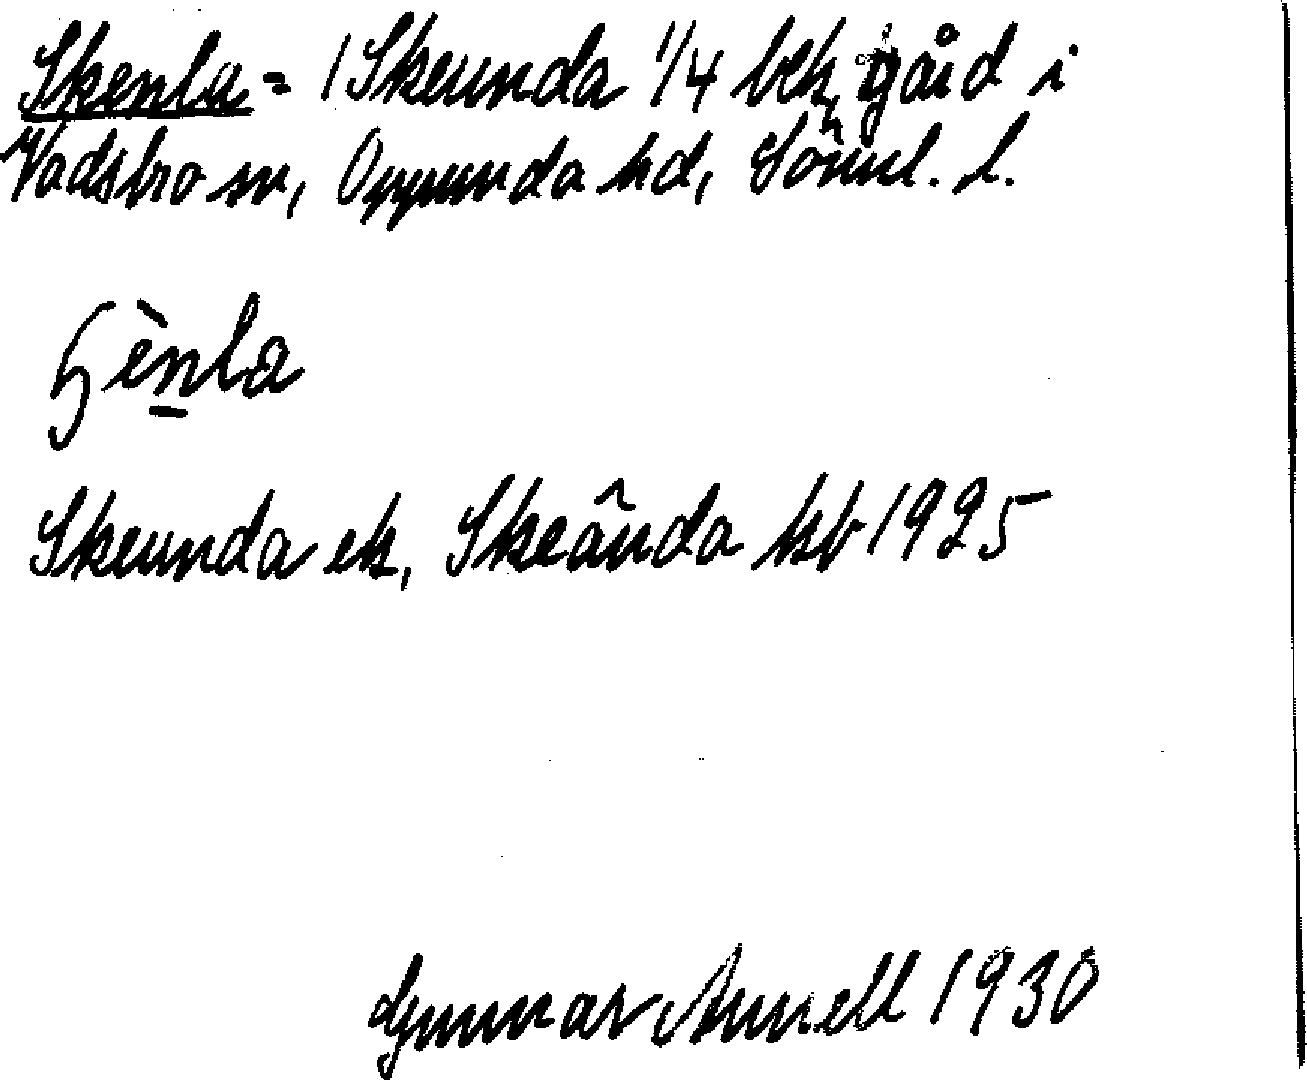 Skenla = / Skeunda 1/4 bek, gård i
Vadsbro sn, Oppunda hd, Söml. l.
ɧènla
Skeunda ek, Skeånda kb 1925
Gunnar Annell 1930